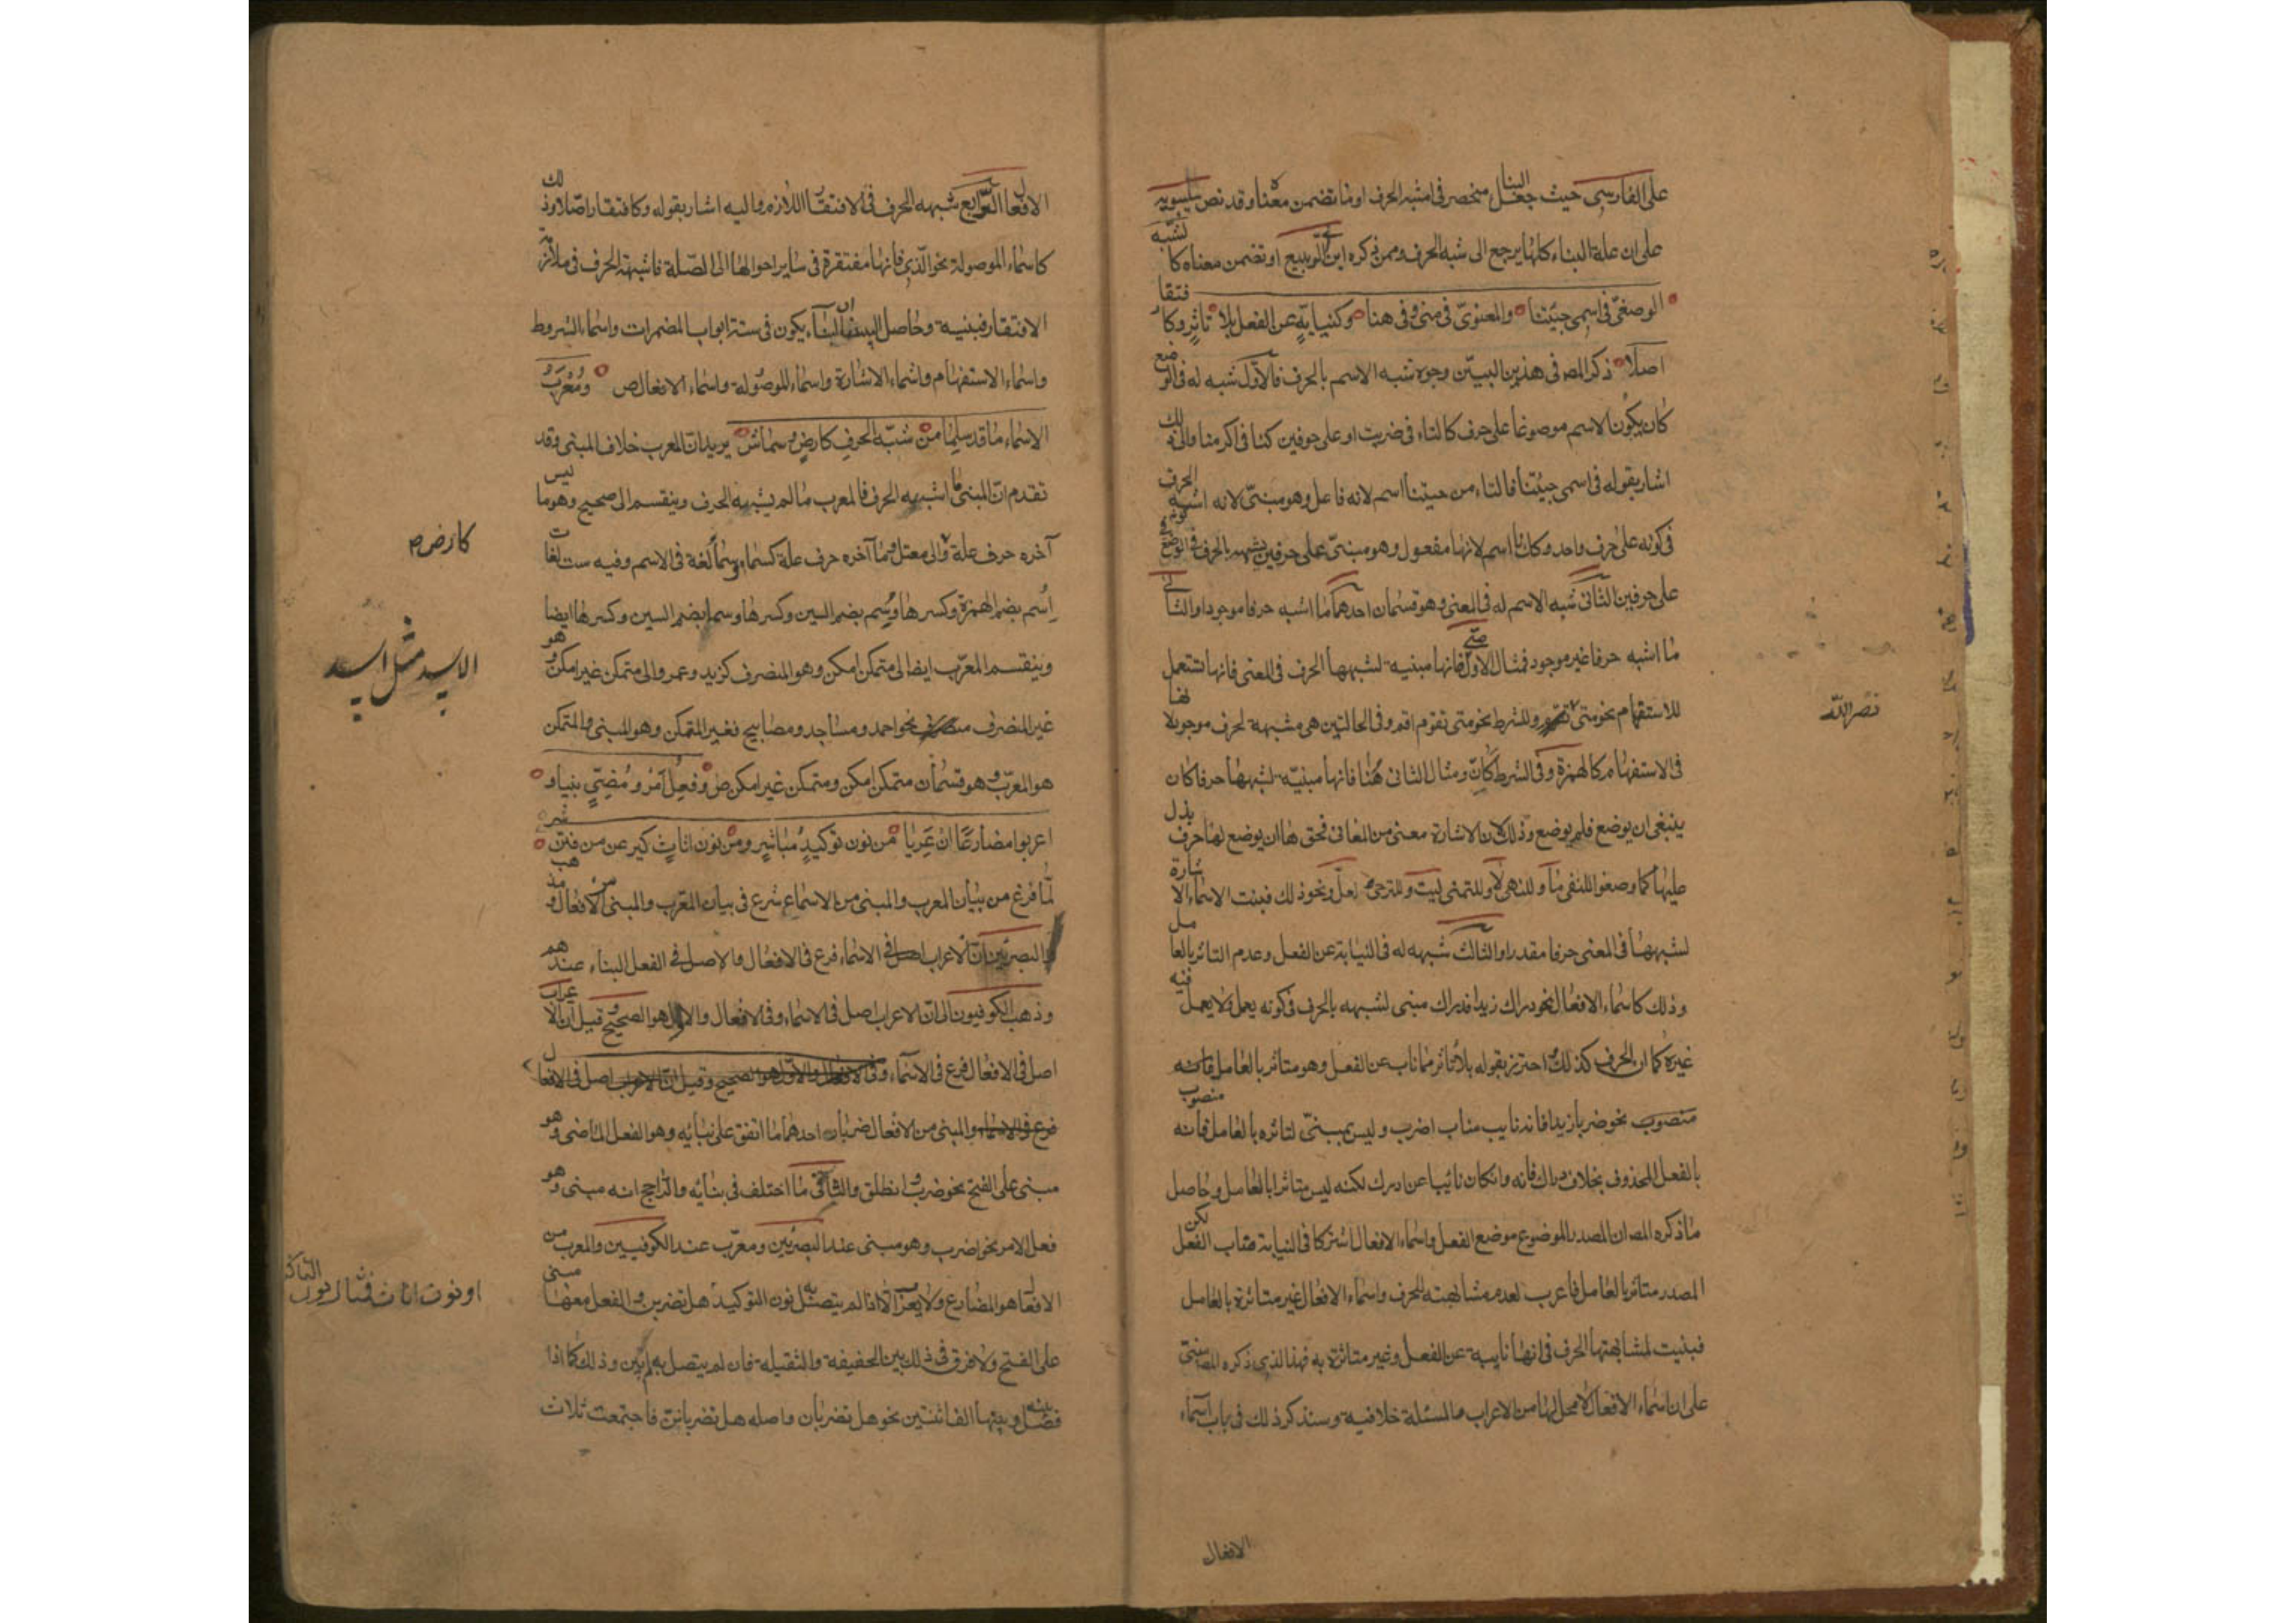 على الفارسى حيث جعل البنا منحصر فى امشبه الحرف او ما تضمن معناه وقد نص سيبويه
على ان علة البناء كلها يرجع الى شبه الحرف وممن ذكره ابن ابى الربيع او تضمن معناه كا لشبه
الوضعىّ فى اسمى جئتنا والمعنوىّ فى متى وفى هنا وكنيابةٍ عن الفعل بلا تاثرٍ وكا فتقا
اصلا ذكر المص فى هذين البيتين وجوه شبه الاسم بالحرف فالاول شبه له فى الو ضع
كان يكون الاسم موضوعا على حرف كالتاء فى ضربت او على حرفين كنا فى اكرمنا والى ذلك
اشار بقوله فى اسمى جئتنا فالتاء من جيتنا اسم لانه فاعل وهو مبنىّ لانه اشبه الحرف
فى كونه على حرف واحد وكذلك نا اسم لانها مفعول وهو مبنىّ على حرفين يشبه بالحرف فى الوضع
على حرفين الثانى شبه الاسم له فى المعنى وهو قسمان احدهما ما اشبه حرفا موجودا والثانى
ما اشبه حرفا غير موجود فمثال الاول متى فانها مبنية لشبهها الحرف فى المعنى فانها تستعمل
للاستفهام نحو متى تقوم وللشرط نحو متى تقوم اقم وفى الحالتين هى مشبهة لحرف موجود لانها
فى الاستفهام كالهمزة وفى الشرط كان ومثال الثانى هنا فانها مبنيّة لشبهها حرفا كان
ينبغى ان يوضع فلم يوضع وذلك لان الاشارة معنى من المعانى فحق ها ان يوضع لها حرف يدل
عليها كما وضعوا للنفى ما وللنهى لا وللتمنى ليت وللترجى لعل ونحو ذلك فبنيت الاسماء الا شارة
لشبهها فى المعنى حرفا مقدرا والثالث شبهه له فى النيابة عن الفعل وعدم التاثر بالعا مل
وذلك كاسماء الافعال نحو دراك زيدا فدراك مبنى لشبهه بالحرف فى كونه يعمل ولا يعمل فيه
غيره كما ان الحرف كذلك احترز بقوله بلا تاثر مما ناب عن الفعل وهو متاثر بالعامل فانه
منصوب نحو ضربا زيدا فانه نايب مناب اضرب وليس بمبنىّ لتاثره بالعامل فانه منصوب
بالفعل المحذوف بخلاف دراك فانه وان كان نائبا عن ادرك لكنه ليس متاثرا بالعامل وحاصل
ما ذكره المص ان المصدر الموضوع موضع الفعل واسماء الافعال اشتركا فى النيابة مناب الفعل لكن
المصدر متاثر بالعامل فاعرب لعدم مشابهته الحرف واسماء الافعال غير متاثرة بالعامل
فبنيت لمشابهتها الحرف فى انها نايبة عن الفعل وغير متاثرة به فهذا الذى ذكره المص مبنىّ
على ان اسماء الافعال لا محل لها من الاعراب والمسئلة خلافية وسنذكر ذلك فى باب اسماء
الافعال
نصر الله
الافعال الرابع شبهه الحرف فى الافتقار اللازم واليه اشار بقوله وكافتقار اصّلا وذلك
كاسماء الموصولة نحو الّذى فانها مفتقرة فى ساير احوالها الى الصّلة فاشبهت الحرف فى ملازمة
الافتقار فبنيت وحاصل البيتين ان البناء يكون فى ستة ابواب المضمرات واسماء الشروط
واسماء الاستفهام واسماء الاشارة واسماء الموصولة واسماء الافعال ص ومُعْرَبُ
الاسماء ما قد سلما من شبه الحرف كارضٍ وسما ش يريد ان المعرب خلاف المبنى وقد
تقدم ان المبنى ما اشبه الحرف فالمعرب ما لم يشبه الحرف وينقسم الى صحيح وهو ما ليس
آخره حرف علة والى معتل وهو ما آخره حرف علة كسما وسما لغة فى الاسم وفيه ست لغات
اسم بضم الهمزة وكسرها وسم بضم السين وكسرها وسما بضم السين وكسرها ايضا
وينقسم المعرب ايضا الى متمكن امكن وهو المنصرف كزيد وعمرو والى متمكن غير امكن وهو
غير المنصرف نحو احمد ومساجد ومصابيح فغير المتمكن وهو المبنى والمتمكن
هو المعرب وهو قسمان متمكن امكن ومتمكن غير امكن ص وفعلُ امرٍ ومُضِىٍّ بنيا و
اعربوا مضارعا ان عريا من نون توكيدٍ مُباشِرٍ ومن نون اناثٍ كيرعن من فتن ش
لما فرغ من بيان المعرب والمبنى من الاسماء شرع فى بيان المعرب والمبنى من الافعال ومذهب
البصريين ان الاعراب اصل فى الاسماء فرع فى الافعال والاصل فى الفعل البناء عندهم
وذهب الكوفيون الى ان الاعراب اصل فى الاسماء وفى الافعال والاول هو الصحيح وقيل ان الاعراب
اصل فى الافعال فرع فى الاسماء وفى الافعال والاول هو الصحيح وقيل ان الاعراب اصل فى الافعال
فرع فى الاسماء والمبنى من الافعال ضربان احدهما ما اتفق على بنائه وهو الفعل الماضى وهو
مبنى على الفتح نحو ضرب وانطلق والثانى ما اختلف فى بنائه والراجح انه مبنى وهو
فعل الامر نحو اضرب وهو مبنى عند البصريين ومعرب عند الكوفيين والمعرب من
الافعال هو المضارع ولا يعرب الا اذا لم يتصل به نون التوكيد هل تضربن والفعل معها مبنى
على الفتح ولا فرق فى ذلك بين الخفيفة والثقيلة فان لم يتصل به لم يبن وذلك كما اذا
فصل بينه وبينها الف اثنين نحو هل تضربان واصله هل تضربانن فاجتمعت ثلاث
كارض ص
او نون اناث فمثال نون التاكيد